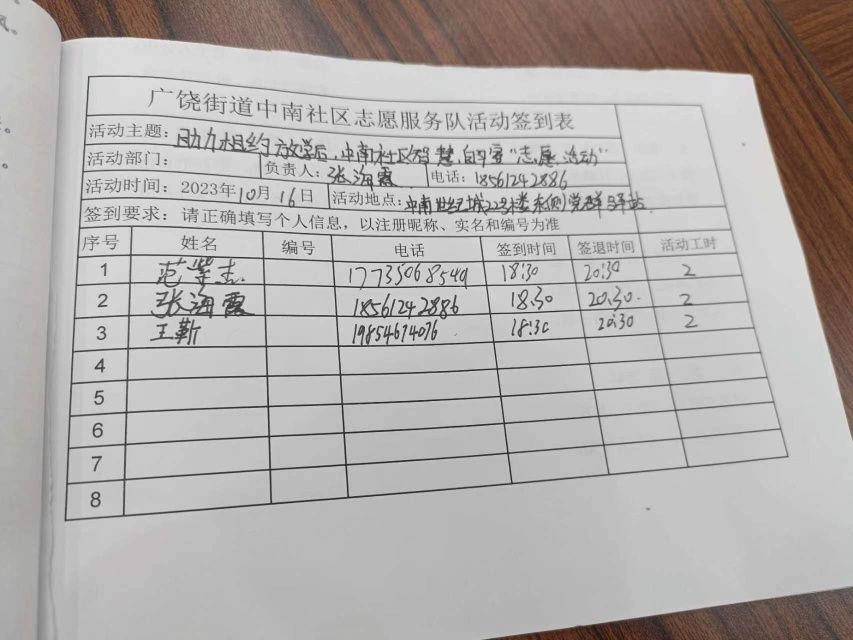 广饶街道中南社区志愿服务队活动签到表
活动主题：助力相约放学后,中南社区智慧自习室"志愿活动"
活动部门： 负责人：张海霞 电话：18561242886
活动时间：2023年10月16日 活动地点：中南世纪城22号楼东侧党群驿站
签到要求：请正确填写个人信息，以注册昵称、实名和编号为准
序号 姓名 编号 电话 签到时间 签退时间 活动工时
1 范 17735068549 18:30 20:30 2
2 张海霞 18561242886 18:30 20:30 2
3 王靳 19854674076 18:30 20:30 2
4
5
6
7
8